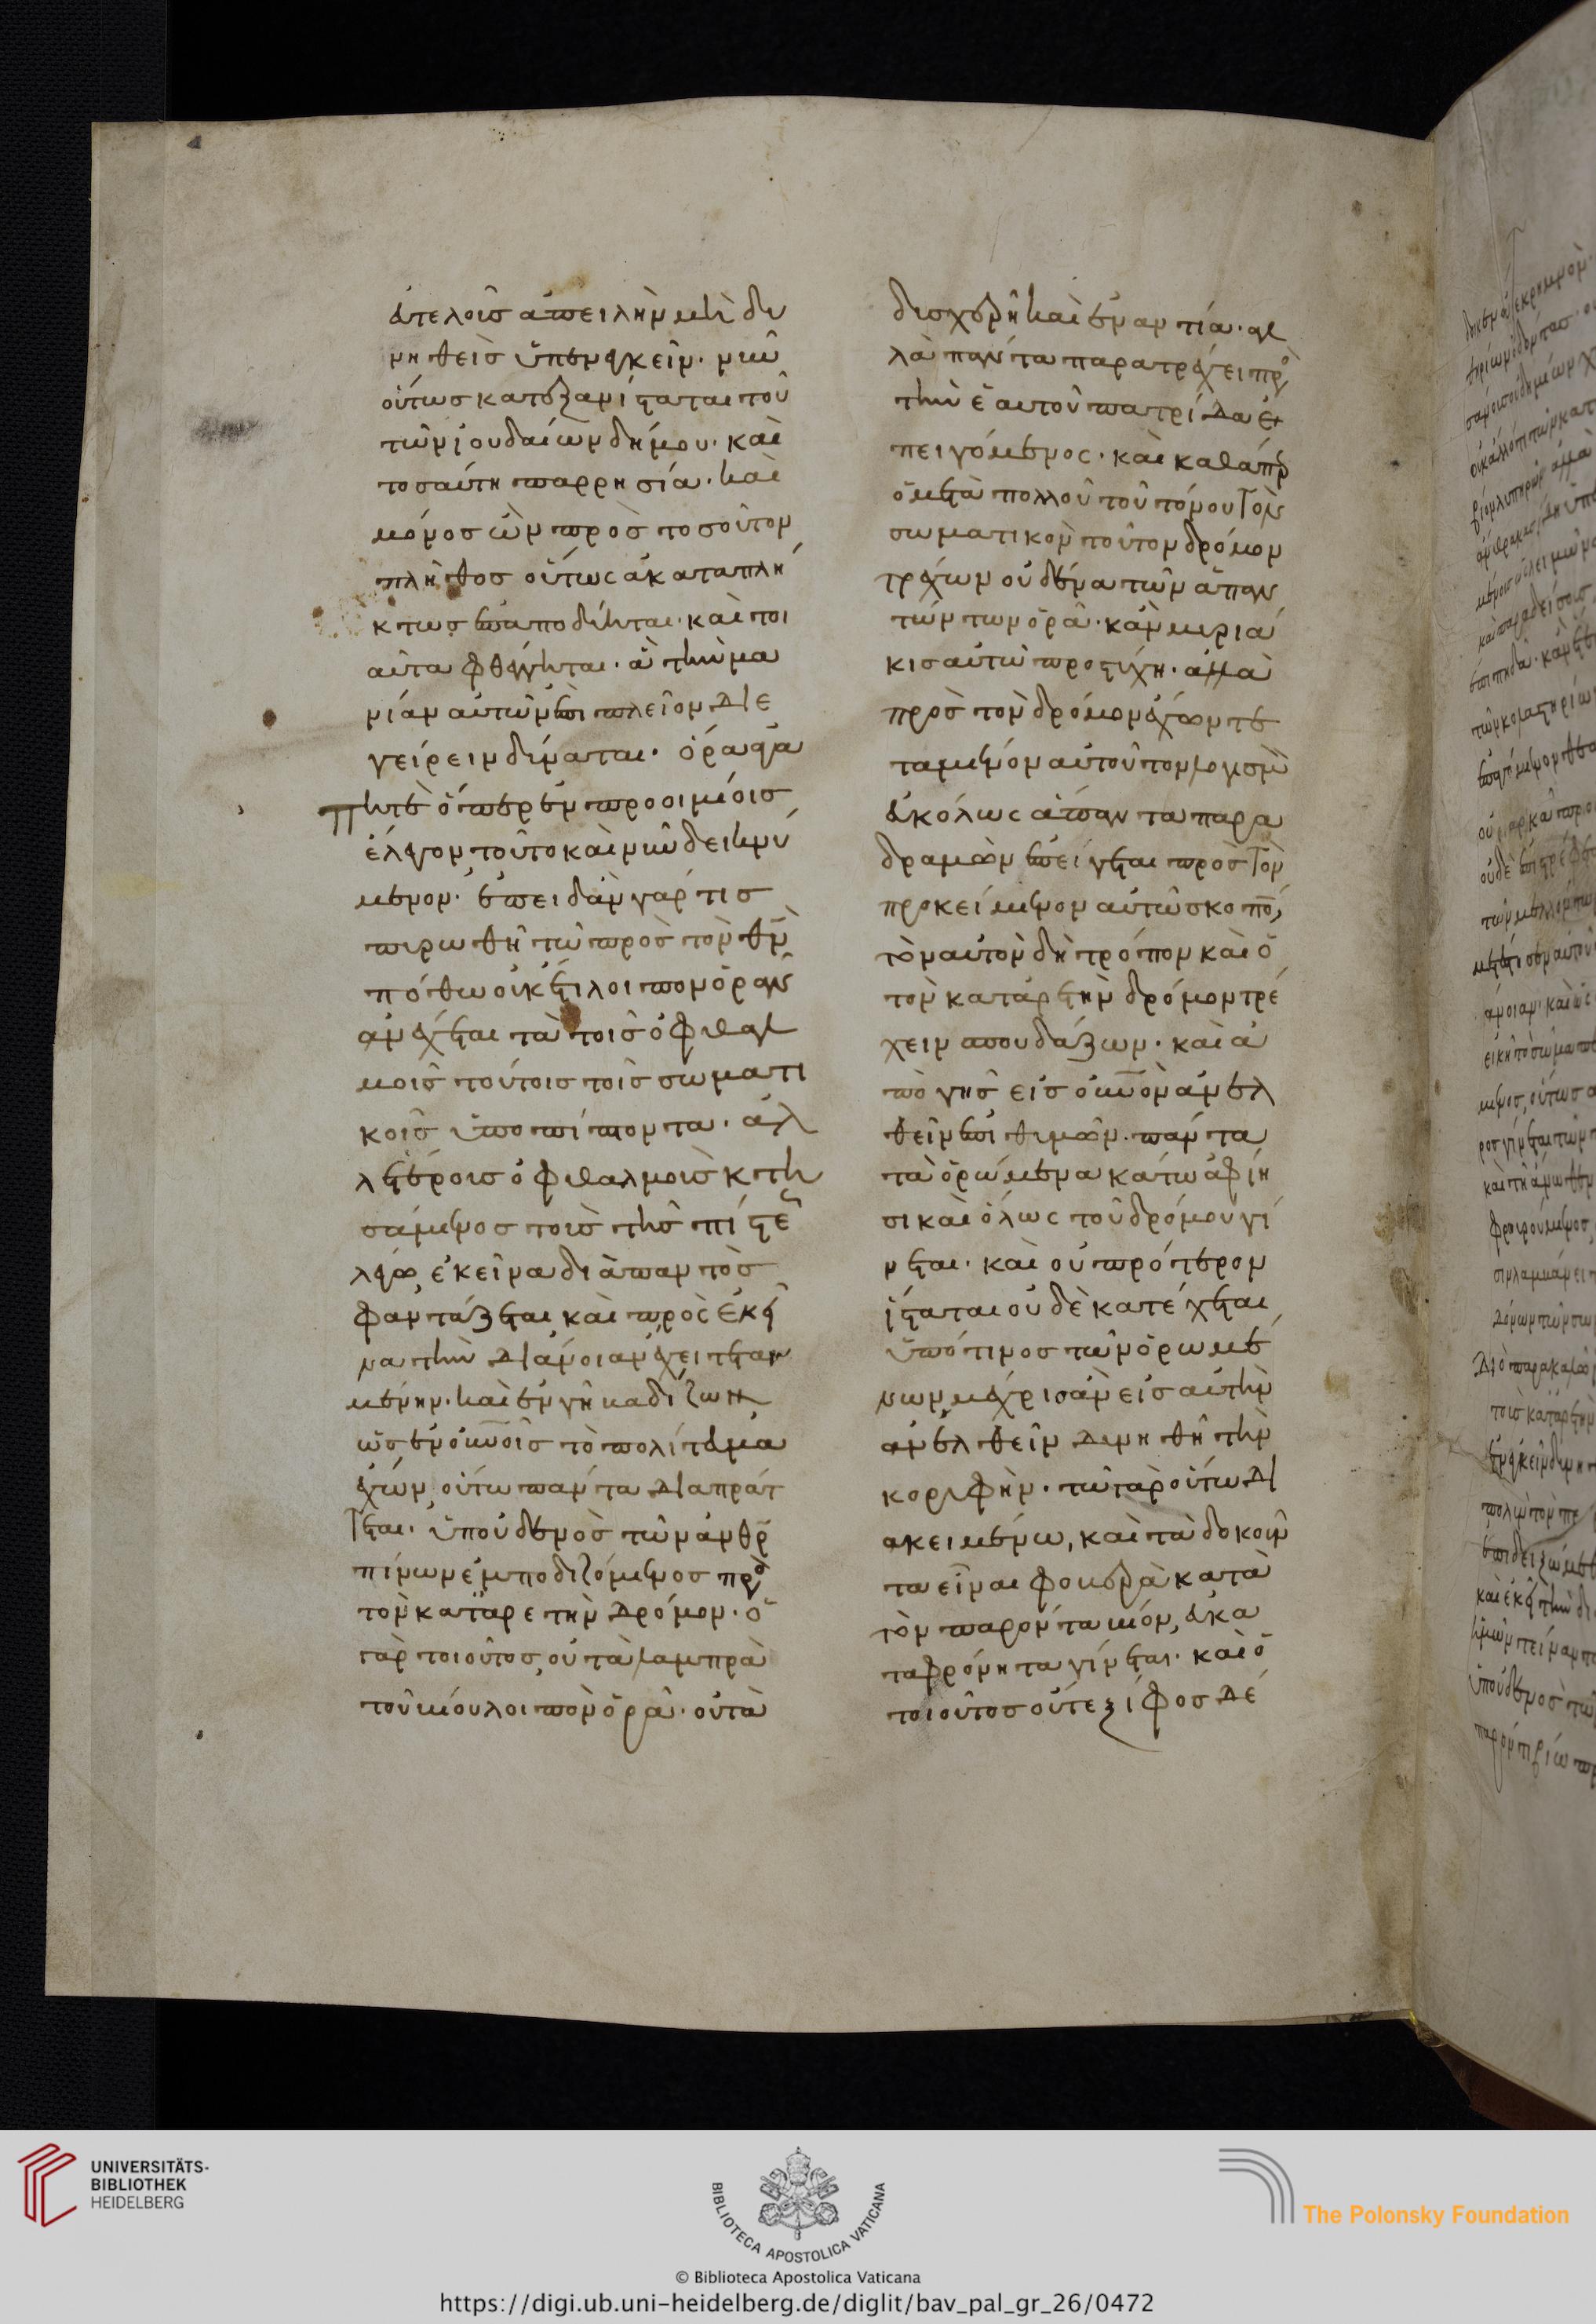 εὐτελοῦς ἀπειλὴν μὴ δυ
νηθεὶς ὑπενεγκεῖν. νῦν
οὕτως κατεξανίσταται τοῦ
τῶν ἰουδαίων δήμου. καὶ
τοσαύτη παρρησία. καὶ
μόνος ὢν πρὸς τοσοῦτον
πλῆθος οὕτως ἀκαταπλή
κτως
αῦτα φθέγγηται. ἃ τὴν μα
νίαν αὐτῶν ἐπὶ πλεῖον διε
γείρειν δύναται. ὁρᾶς ἀγα
πητὲ ὅπερ ἐν προοιμίοις
ἔλεγον, τοῦτο καὶ νῦν δεικνύ
μενον. ἐπειδὰν γάρ τις
πυρωθῆ τῶ πρὸς τὸν θν̄
πόθω οὐκέτι λοιπὸν ὁρᾶν
ἀνέχεται τὰ τοῖς ὀφθαλ
μοῖς τούτοις τοῖς σωματι
κοῖς ὑποπίπτοντα. ἀλλ
ἑτέροις ὀφθαλμοῖς κτη
σάμενος τοῖς τῆς πίστεως
λέγω, ἐκεῖνα διὰ παντὸς
φαντάζεται, καὶ πρὸς ἐκεῖ
να τὴν διάνοιαν ἔχει τεταγ
μένην. καὶ ἐν γῆ βαδίζων
ὡς ἐν οὐνοῖς τὸ πολίτευμα
ἔχων, οὕτω πάντα διαπράτ
τεται. ὑπ' οὐδενὸς τῶν ἀνθρω
πίνων ἐμποδιζόμενος πρὸς
τὸν κατ' ἀρετὴν δρόμον. ὁ
γὰρ τοιοῦτος, οὐ τὰ λαμπρὰ
τοῦ βίου λοιπὸν ὁρᾶ. οὐ τὰ
δυσχερῆ καὶ ἐναντία. ἀλ
λὰ πάντα παρατρέχει πρὸς
τὴν ἑαυτοῦ πατρίδα ἐ
πειγόμενος. καὶ καθάπερ
ὁ μετὰ πολλοῦ τοῦ τόνου τὸν
σωματικὸν τοῦτον δρόμον
τρέχων οὐδένα τῶν ἀπαν
τώντων ὁρᾶ. κἂν μυριά
κις αὐτῶ προστύχη. ἀλλὰ
πρὸς τὸν δρόμον ἔχων τε
ταμένον αὐτοῦ τὸν λογισμὸν
εὐκόλως ἅπαντα παρα
δραμὼν ἐπείγεται πρὸς τὸν
προκείμενον αὐτῶ σκοπόν,
τὸν αὐτὸν δὴ τρόπον καὶ ὁ
τὸν κατ' ἀρετὴν δρόμον τρέ
χειν σπουδάζων. καὶ ἀ
πὸ γῆς εἰς οὐνὸν ἀνελ
θεῖν ἐπιθυμῶν. πάντα
τὰ ὁρώμενα κάτω ἀφίη
σι καὶ ὅλως τοῦ δρόμου γί
νεται. καὶ οὐ πρότερον
ἵσταται οὐδὲ κατέχεται
ὑπό τινος τῶν ὁρωμέ
νων, μέχρις ἂν εἰς αὐτὴν
ἀνελθεῖν δυνηθῆ τὴν
κορυφήν. τῶ γὰρ οὕτω δι
ακειμένω, καὶ τὰ δοκοῦν
τα εἶναι φοβερὰ κατὰ
τὸν παρόντα βίον, εὐκα
ταφρόνητα γίνεται. καὶ ὁ
τοιοῦτος οὔτε ξίφος δέ
UNIVERSITÄTS-
BIBLIOTHEK
HEIDELBERG
BIBLIOTECA APOSTOLICA VATICANA
The Polonsky Foundation
© Biblioteca Apostolica Vaticana
https://digi.ub.uni-heidelberg.de/diglit/bav_pal_gr_26/0472